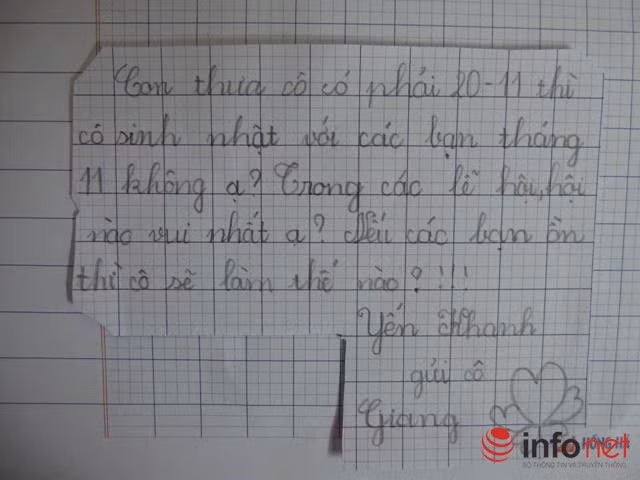 Con thưa cô có phải 20-11 thì
cô sinh nhật với các bạn tháng
11 không ạ? Trong các lễ hội, hội
nào vui nhất ạ? Nếu các bạn ồn
thì cô sẽ làm thế nào?!!!
Yến Khanh
gửi cô
Giang
HỒNG
infonet
BỘ THÔNG TIN VÀ TRUYỀN THÔNG